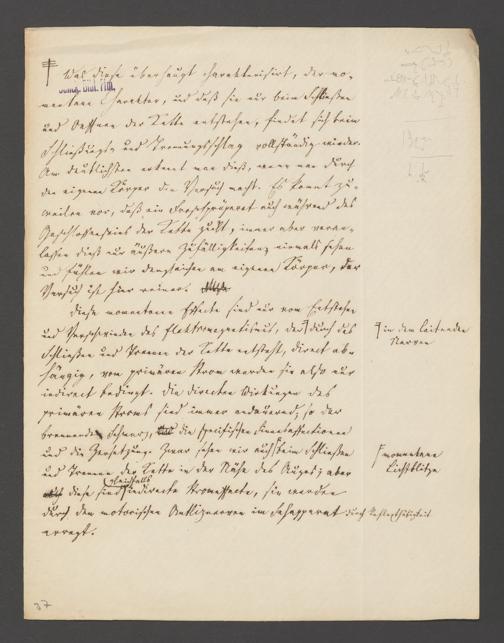 Was diese überhaupt charakterisirt, der mo-
mentane Charakter, und daß sie nur beim Schließen
und Oeffnen der Kette entstehen, findet sich beim
Schließungs- und Trennungsschlag vollständig wieder.
Am deutlichsten erkennt man dieß, wenn man durch
den eigenen Körper den Versuch macht. Es kommt zu-
weilen vor, daß ein Froschpräparat auch während des
Geschlossenseins der Kette zuckt, immer aber veran-
lassen dieß nur äußere Zufälligkeiten, niemals sehen
und fühlen wir dergleichen am eigenen Körper, der
Versuch ist hier reiner.
Diese momentanen Effecte sind nur vom Entstehen
und Verschwinden des Elektromagnetismus, der durch das
in den leitenden
Nerven
Schließen und Trennen der Kette entsteht, direct ab-
hängig, vom primären Strom werden sie also nur
indirect bedingt. Die directen Wirkungen des
primären Stroms sind immer andauernd, so der
brennende Schmerz, die specifischen Sinnesaffectionen
und die Zersetzung. Zwar sehen wir auch beim Schließen
momentane
Lichtblitze
und Trennen der Kette in der Nähe des Auges; aber
diese sind gleichfalls indirecte Stromeffecte, sie werden
durch den motorischen Antlitznerven im Sehapparat durch Reflexthätigkeit
erregt.
37